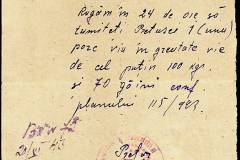 Rugăm în 24 de ore să
tumiteti Pretusei 1 (unu)
porc viu în greutate vie
de cel puțin 100 kgr.
și 70 găini conf.
planului 115/943.
Pretor